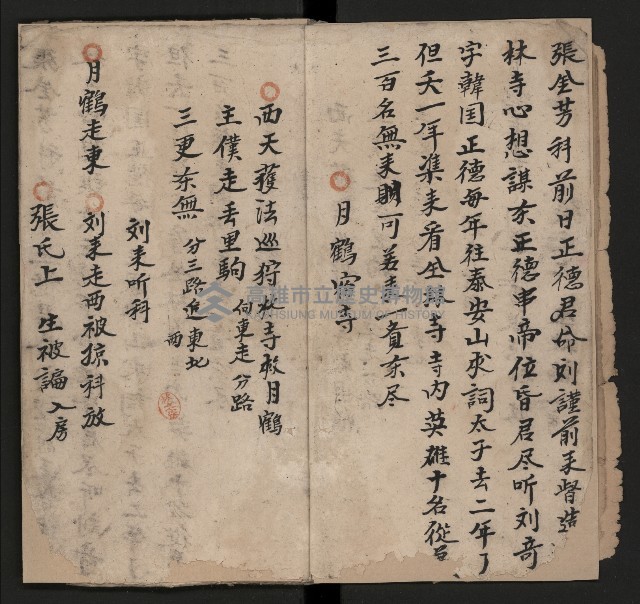 張全芳科前日正德君命刘謹前來督造
林寺心想謀東正德串帝位昏君尽听刘奇
字韓国正德每年往泰安山求詞太子去二年了
但夭一年集來看全林寺寺內英雄十名從
三百名無來 可差來 東尽
月鶴 寺
西天護法巡狩 寺救月鶴
主僕走丢里駒 向東走 分路
三更東無 分三路 東北 西
刘来听科
月鶴走東 刘来走西被掠科放
張氏上 生被諞入房
高雄市立歷史博物館
KAOHSIUNG MUSEUM OF HISTORY